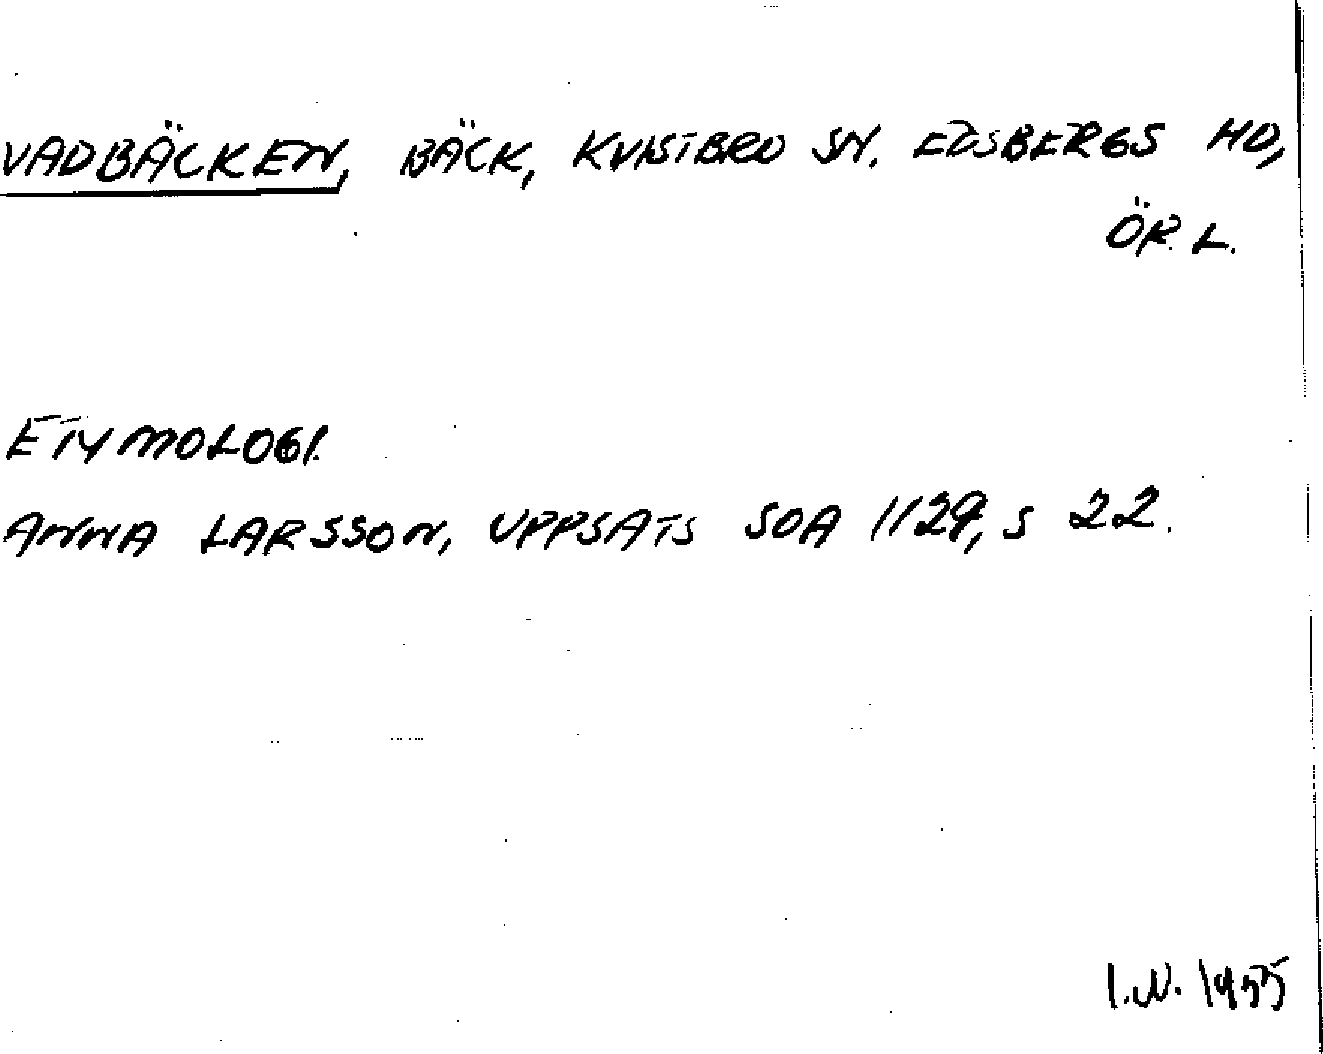 VADBÄCKEN, BÄCK, KVISTBRO SN. EDSBERGS HD,
ÖR. L.
ETYMOLOGI.
ANNA LARSSON, UPPSATS SOA 1129, S 22.
I.N. 1955